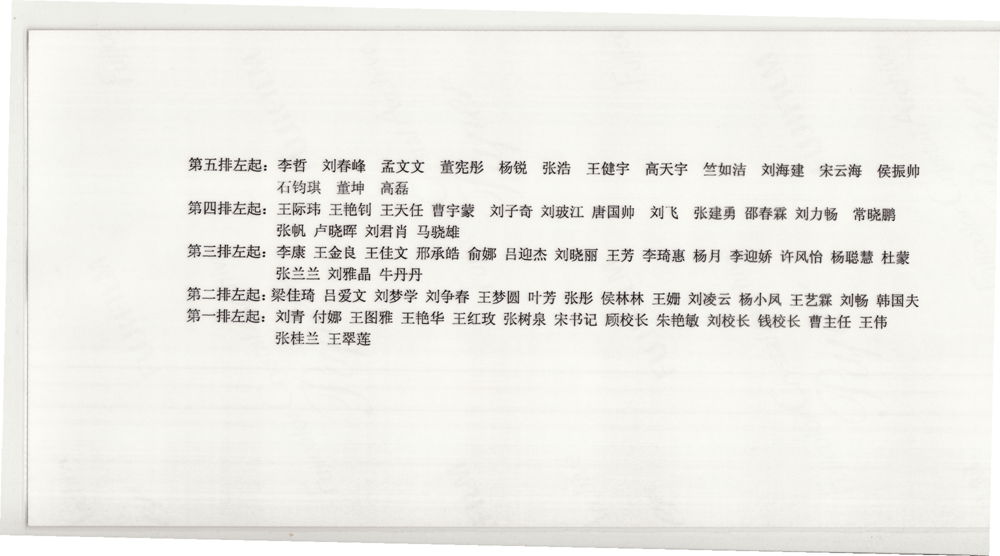 第五排左起：李哲 刘春峰 孟文文 董宪彤 杨锐 张浩 王健宇 高天宇 竺如洁 刘海建 宋云海 侯振帅
石钧琪 董坤 高磊
第四排左起：王际玮 王艳钊 王天任 曹宇蒙 刘子奇 刘玻江 唐国帅 刘飞 张建勇 邵春霖 刘力畅 常晓鹏
张帆 卢晓晖 刘君肖 马骁雄
第三排左起：李康 王金良 王佳文 邢承皓 俞娜 吕迎杰 刘晓丽 王芳 李琦惠 杨月 李迎娇 许风怡 杨聪慧 杜蒙
张兰兰 刘雅晶 牛丹丹
第二排左起：梁佳琦 吕爱文 刘梦学 刘争春 王梦圆 叶芳 张彤 侯林林 王姗 刘凌云 杨小凤 王艺霖 刘畅 韩国夫
第一排左起：刘青 付娜 王图雅 王艳华 王红玫 张树泉 宋书记 顾校长 朱艳敏 刘校长 钱校长 曹主任 王伟
张桂兰 王翠莲